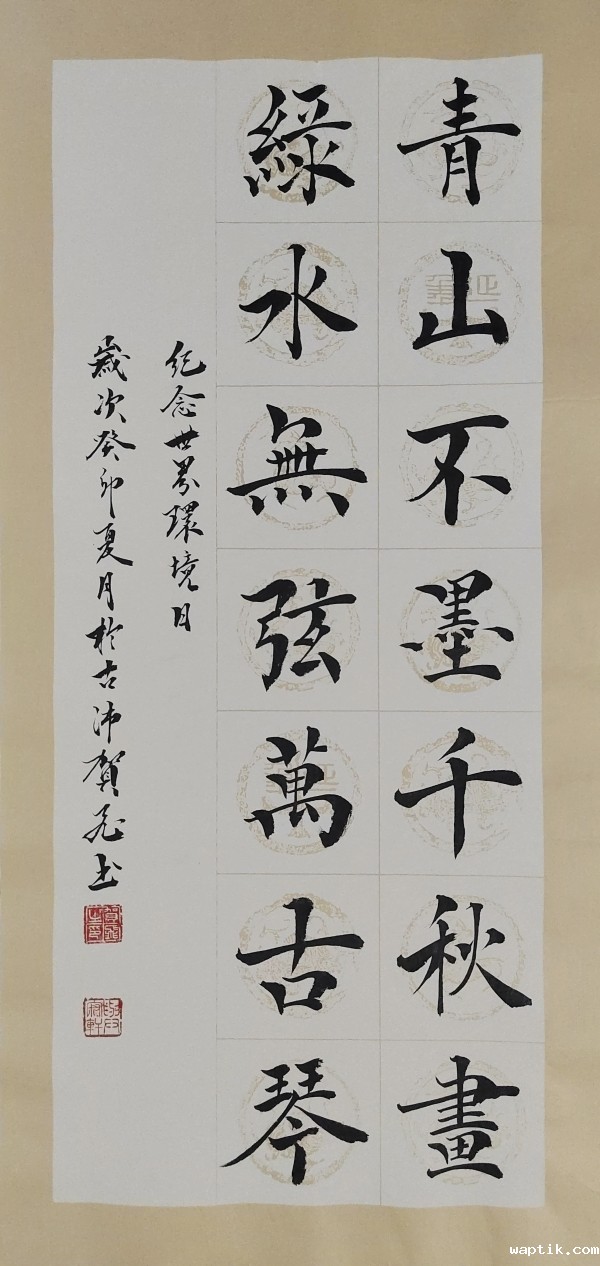 青山不墨千秋畫
綠水無弦萬古琴
紀念世界環境日
歲次癸卯夏月於古沛賀書
waptik.com